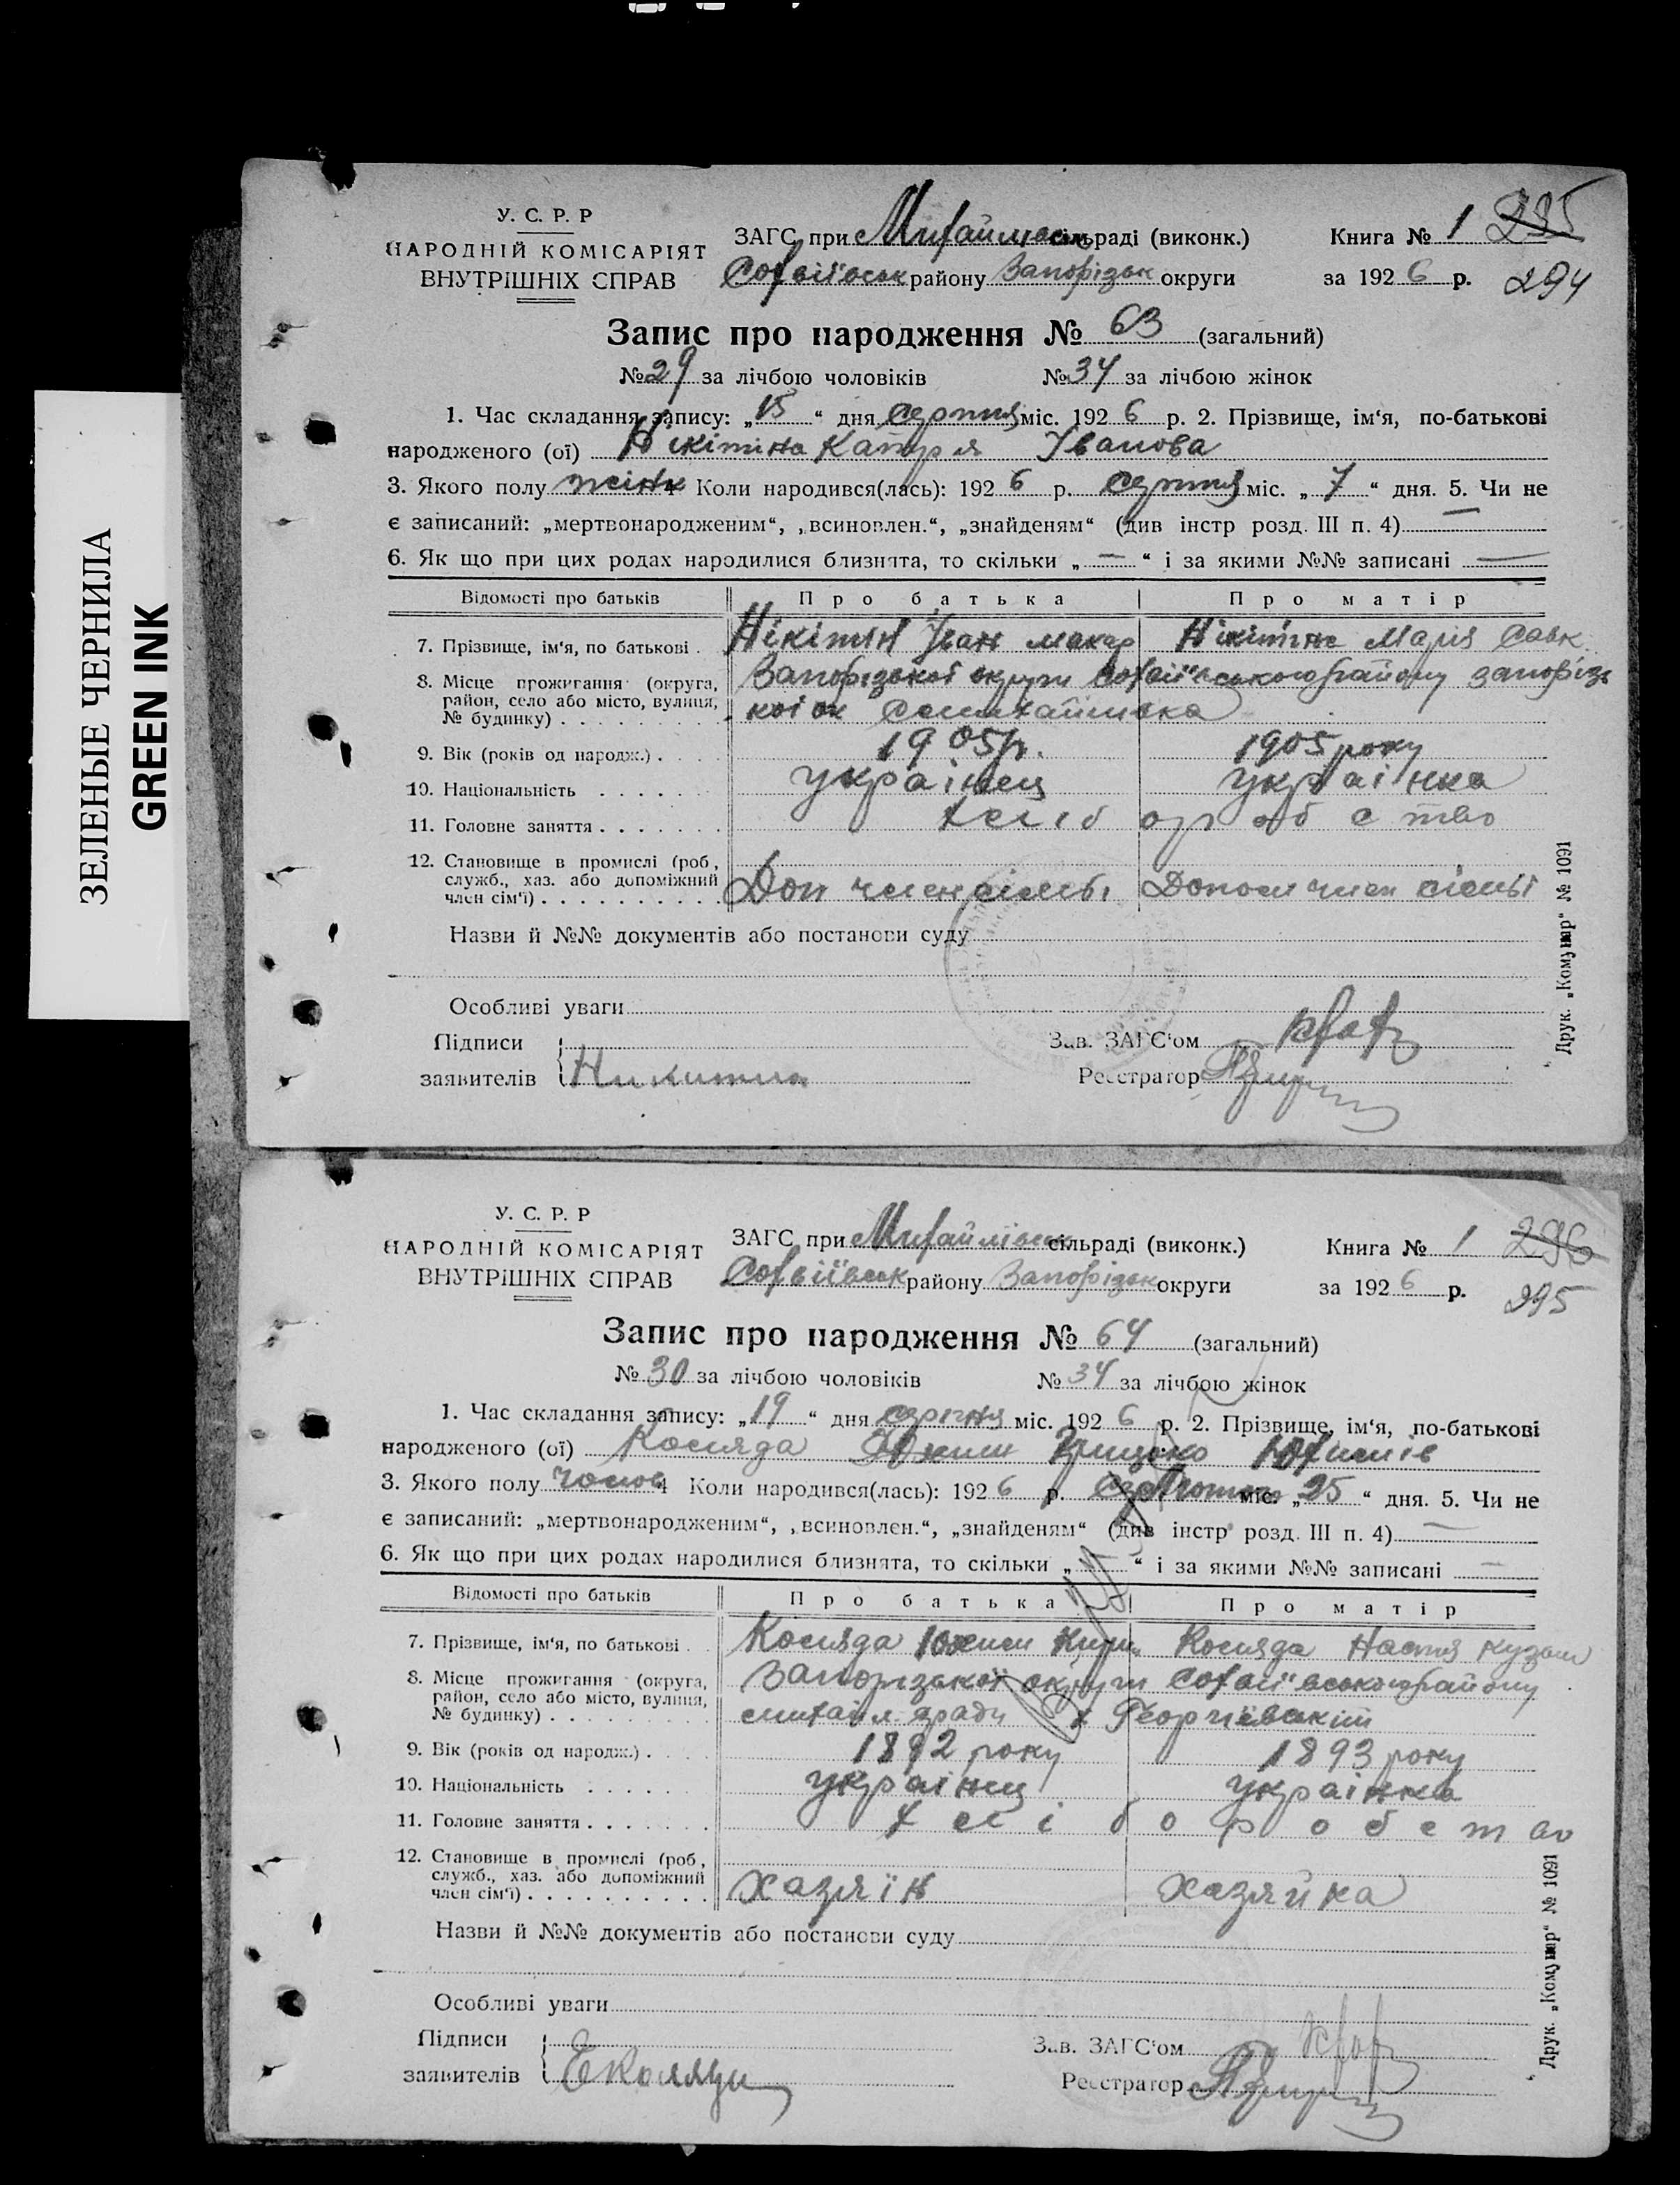 ЗЕЛЕНЫЕ ЧЕРНИЛА
GREEN INK
У. С. Р. Р
НАРОДНІЙ КОМІСАРІЯТ
ВНУТРІШНІХ СПРАВ
ЗАГС при Михайлівськ сільраді (виконк.)
Софіївськ району Запорізьк округи
Книга № 1 295
за 1926 р. 294
Запис про народження № 63 (загальний)
№ 29 за лічбою чоловіків № 34 за лічбою жінок
1. Час складання запису: „15“ дня серпня міс. 1926 р. 2. Прізвище, ім‘я, по-батькові
народженого (ої) Нікітіна Катря Іванова
3. Якого полу жінк 4 Коли народився(лась): 1926 р. серпня міс. „7“ дня. 5. Чи не
є записаний: „мертвонародженим“, „всиновлен.“, „знайденям“ (див інстр розд. III п. 4) —
6. Як що при цих родах народилися близнята, то скільки „—“ і за якими №№ записані —
Відомості про батьків Про батька Про матір
7. Прізвище, ім‘я, по батькові . Нікітін Іван Макар Нікітіна Марія Савк
8. Місце прожигання (округа, район, село або місто, вулиця, № будинку) Запорізької округи Софіївського району Запорізь
кої ок
9. Вік (років од народж.) 1905 р. 1905 року
10. Національність українец українка
11. Головне заняття хліборобство
12. Становище в промислі (роб, служб., хаз. або допоміжний член сім‘ї) Доп член сімьі Допом член сімьі
Назви й №№ документів або постанови суду
Особливі уваги
Підписи
заявителів Никитин
Зав. ЗАГС‘ом
Реєстратор
Друк. „Комунар“ № 1091
У. С. Р. Р
НАРОДНІЙ КОМІСАРІЯТ
ВНУТРІШНІХ СПРАВ
ЗАГС при Михайлівськ сільраді (виконк.)
Софіївськ району Запорізьк округи
Книга № 1 296
за 1926 р. 295
Запис про народження № 64 (загальний)
№ 30 за лічбою чоловіків № 34 за лічбою жінок
1. Час складання запису: „19“ дня серпня міс. 1926 р. 2. Прізвище, ім‘я, по-батькові
народженого (ої) Коляда Грицько Юхимів
3. Якого полу чолов 4 Коли народився(лась): 1926 р. Лютого міс. „25“ дня. 5. Чи не
є записаний: „мертвонародженим“, „всиновлен.“, „знайденям“ (див інстр розд. III п. 4) —
6. Як що при цих родах народилися близнята, то скільки „ “ і за якими №№ записані —
Відомості про батьків Про батька Про матір
7. Прізвище, ім‘я, по батькові . Коляда Юхим Кири Коляда Настя Кузьм
8. Місце прожигання (округа, район, село або місто, вулиця, № будинку) Запорізької округи Софіївського району
михайл зради х Георгієвський
9. Вік (років од народж.) 1892 року 1893 року
10. Національність українц українка
11. Головне заняття хліборобство
12. Становище в промислі (роб, служб., хаз. або допоміжний член сім‘ї) хазяїн хазяйка
Назви й №№ документів або постанови суду
Особливі уваги
Підписи
заявителів
Зав. ЗАГС‘ом
Реєстратор
Друк. „Комунар“ № 1091